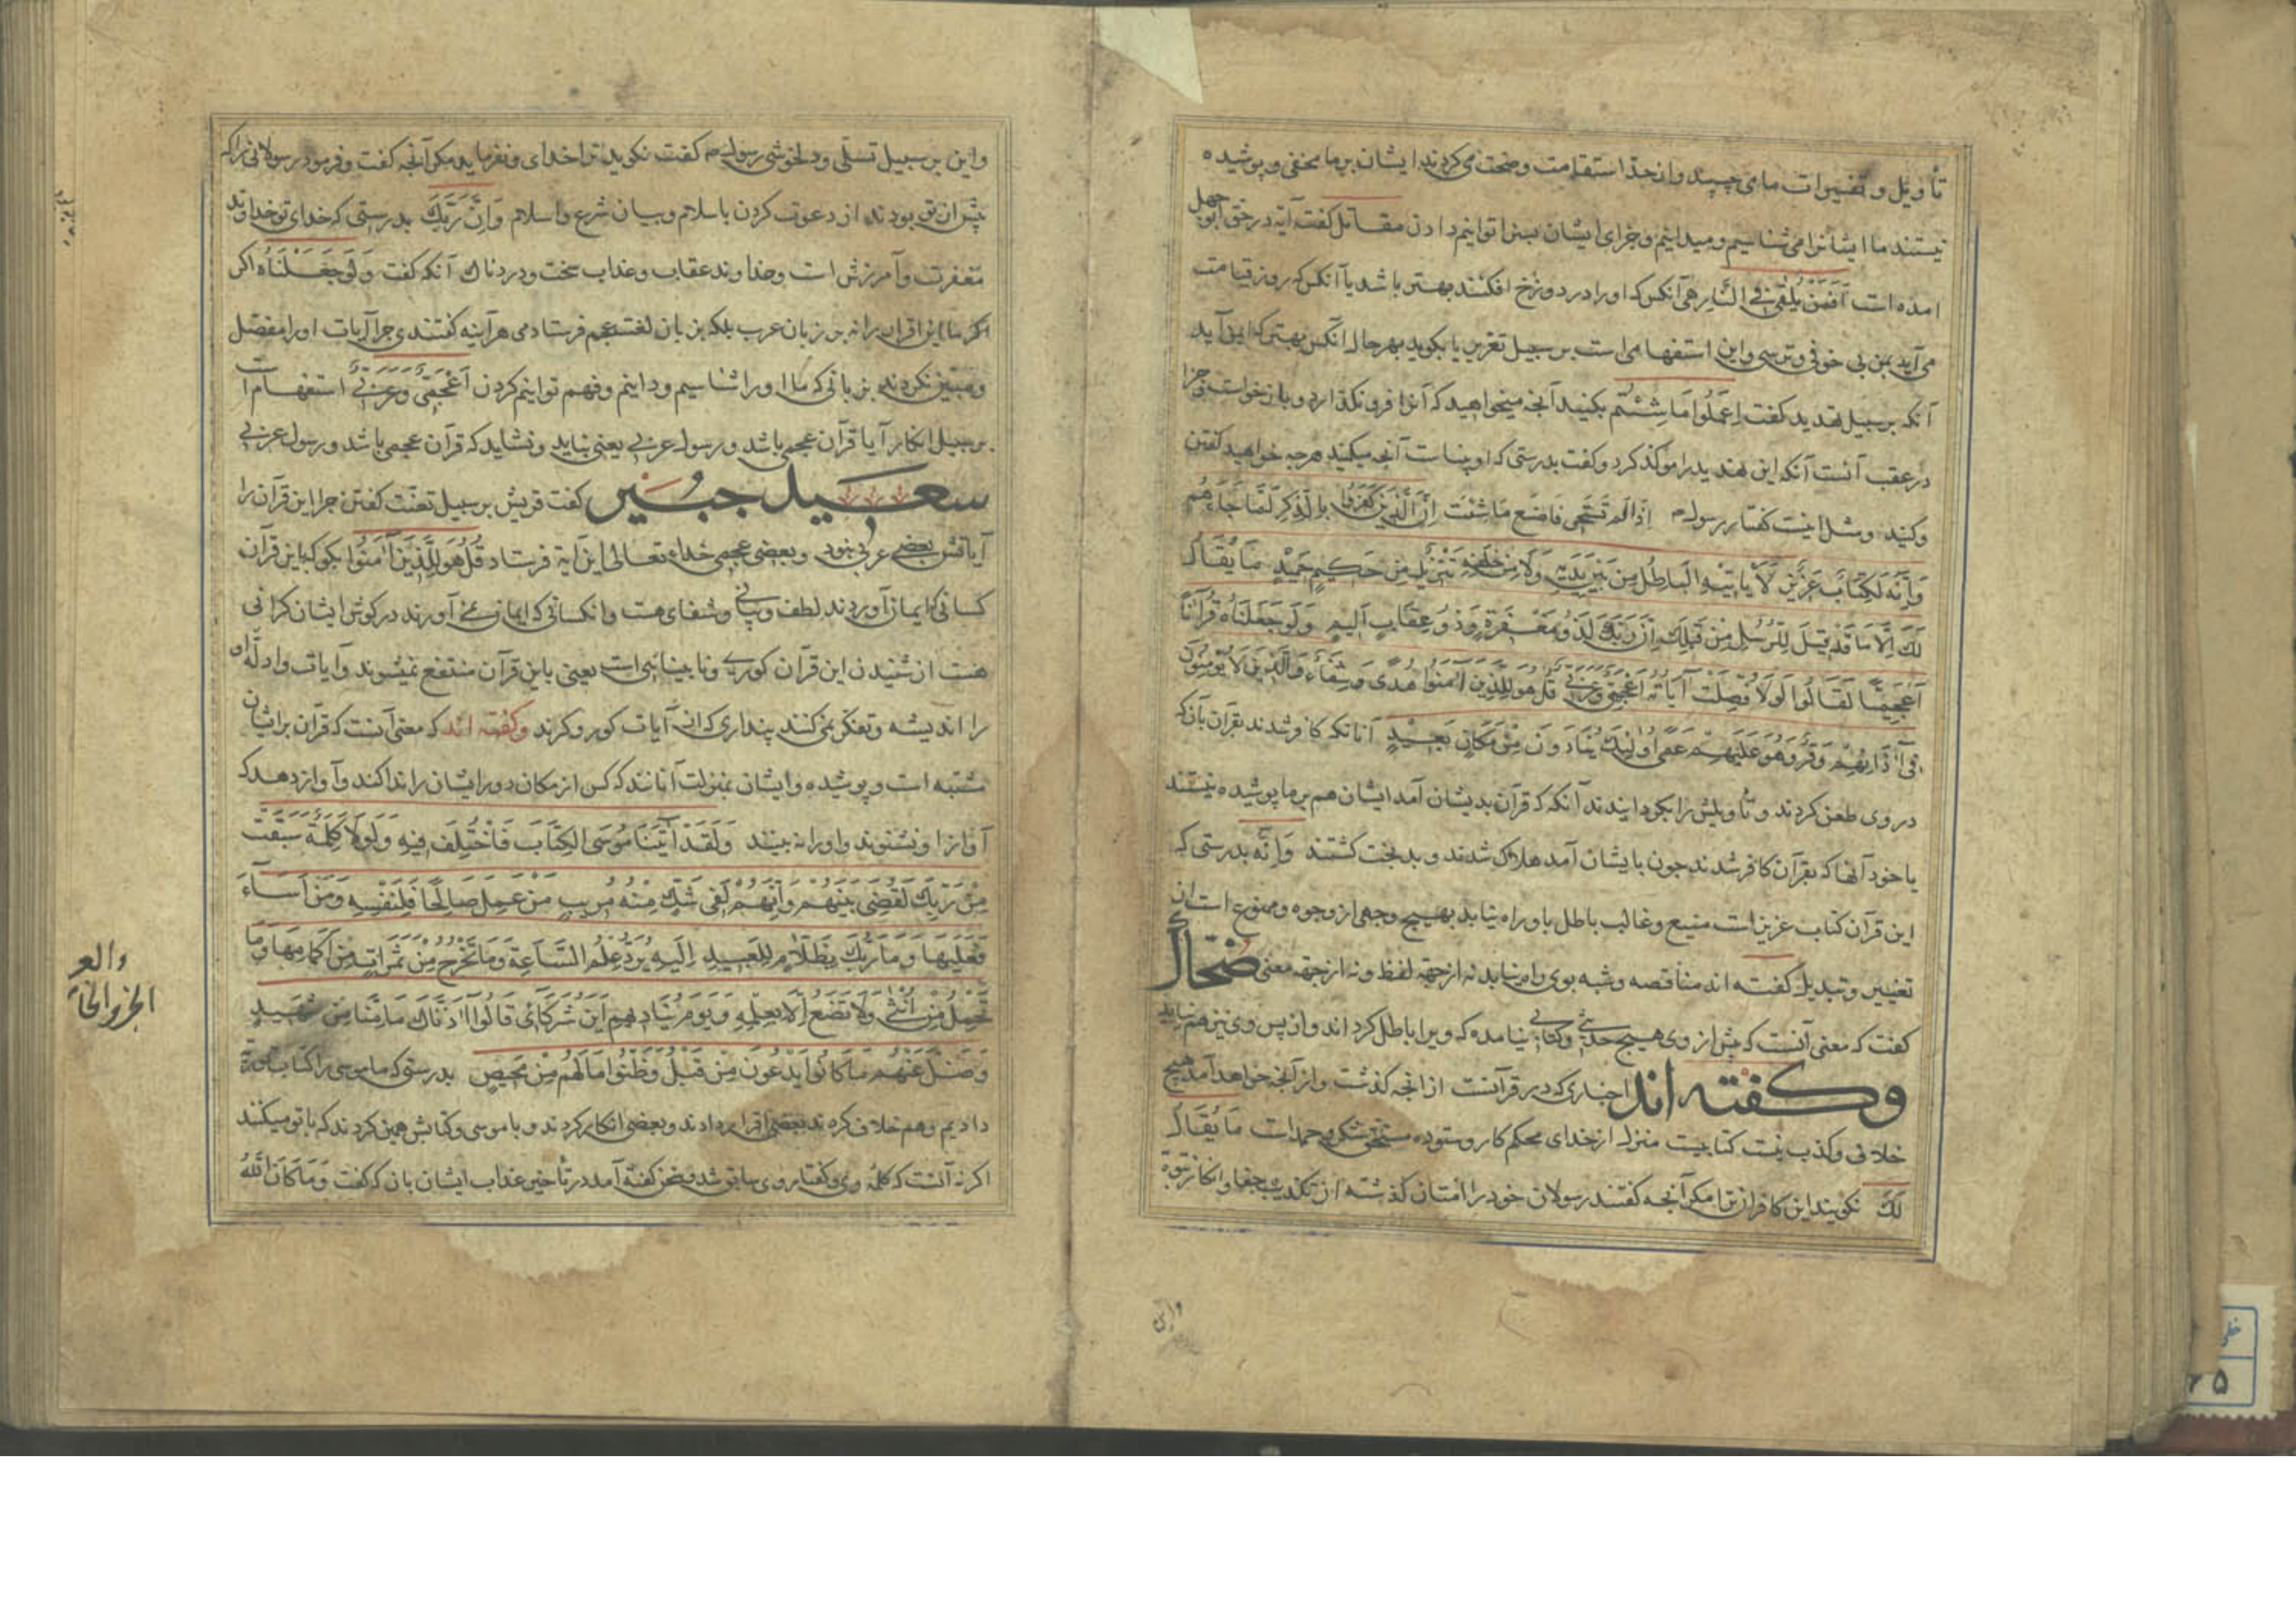 تأویل و تفسیرات ما می چسپند و از حدّ استقامت و صحت می کردند ایشان بر ما مخفی و پوشیده
نیستند ما ایشانرا می شناسیم و میدانیم و جزای ایشان بسزا توانیم دادن مقاتل کفت آیه در حق ابو جهل
امده است اَفَمَنْ یُلْقٰی فِی النَّارِ هی آنکس که او را در دوزخ افکنند بهتر باشد یا آنکس که روز قیامت
می آید بمن بی خوفی و ترسی و این استفهامی است بر سبیل تقریر یا بکوید بهر حال آنکس بهتر که ایمن آید
آنکه بر سبیل تهدید کفت اِعْمَلُوا مَا شِئْتُمْ بکنید آنچه میخواهید که آنرا فرو نکذارد و باز خواست جزا
در عقب آنست آنکه این تهدید را موکد کرد و کفت بدرستی که او بیناست آنچه میکنید هر چه خواهید کفتن
وکنید و مثل اینست کفتار رسول م اِذَا لَمْ تَسْتَحْیِ فَاصْنَعْ مَا شِئْتَ اِنَّ الَّذِینَ کَفَرُوا بِالذِّکْرِ لَمَّا جَاءَهُمْ
وَاِنَّهُ لَکِتَابٌ عَزِیزٌ لَا یَاْتِیهِ الْبَاطِلُ مِنْ بَیْنِ یَدَیْهِ وَلَا مِنْ خَلْفِهِ تَنْزِیلٌ مِنْ حَکِیمٍ حَمِیدٍ مَا یُقَالُ
لَکَ اِلَّا مَا قَدْ قِیلَ لِلرُّسُلِ مِنْ قَبْلِکَ اِنَّ رَبَّکَ لَذُو مَغْفِرَةٍ وَذُو عِقَابٍ اَلِیمٍ وَلَوْ جَعَلْنَاهُ قُرْآنًا
اَعْجَمِیًّا لَقَالُوا لَوْلَا فُصِّلَتْ آیَاتُهُ اَاَعْجَمِیٌّ وَعَرَبِیٌّ قُلْ هُوَ لِلَّذِینَ آمَنُوا هُدًی وَشِفَاءٌ وَالَّذِینَ لَا یُؤْمِنُونَ
فِی آذَانِهِمْ وَقْرٌ وَهُوَ عَلَیْهِمْ عَمًی اُولٰئِکَ یُنَادَوْنَ مِنْ مَکَانٍ بَعِیدٍ آنانکه کافر شدند بقرآن بآنکه
در وی طعن کردند و تأویلش را بکردانیدند آنکه که قرآن بدیشان آمد ایشان هم بر ما پوشیده نیستند
یا خود آنها که بقرآن کافر شدند چون بایشان آمد هلاک شدند و بدبخت کشتند وَاِنَّهُ بدرستی که
این قرآن کتاب عزیز است منیع و غالب باطل باو راه نیابد بهیچ وجهی از وجوه و ممنوع است از
تغییر و تبدیل کفته اند مناقصه و شبه بوی راه نیابد نه از جهة لفظ و نه از جهة معنی ضحاک
کفت که معنی آنست که پیش از وی هیچ حدیثی و کتابی نیامده که ویرا باطل کرد اند و از پس وی نیز هم نیاید
وکفته اند اخباری که در قرآنست از انچه کذشت و از آنچه خواهد آمد هیچ
خلافی وکذب نیست کتابیست منزل از خدای محکم کار و ستوده مستحق شکر و حمد است مَا یُقَالُ
لَکَ نکویند این کافران ترا مکر آنچه کفتند رسولان خود را امتان کذشته از تکذیب و جفا و انکار نبوّة
و این
و این بر سبیل تسلی و دلخوشی رسول م کفت نکوید ترا خدای و نفرماید مکر آنچه کفت و فرمود رسولانی را که
پیش از تو بودند از دعوت کردن باسلام و بیان شرع و اسلام وَاِنَّ رَبَّکَ بدرستی که خدای تو خداوند
مغفرت و آمرزش است و خداوند عقاب و عذاب سخت و دردناک آنکه کفت وَلَوْ جَعَلْنَاهُ اکر
اکر ما این قرآن را نه بر زبان عرب بلکه بزبان لغت عجم فرستادمی هر آینه کفتندی چرا آیات او را مفصّل
و مبیّن نکردند بزبانی که ما او را شناسیم و دانیم و فهم توانیم کردن اَاَعْجَمِیٌّ وَعَرَبِیٌّ استفهام است
بر سبیل انکار آیا قرآن عجمی باشد و رسول عربی یعنی نباید و نشاید که قرآن عجمی باشد و رسول عربی
سعید جبیر کفت قریش بر سبیل تعنّت کفتن چرا این قرآن را
آیاتش بعضی عربی نبود و بعضی عجمی خدای تعالی این آیه فرستاد قُلْ هُوَ لِلَّذِینَ آمَنُوا بکو که این قرآن
کسانی که ایمان آوردند لطف و بیانی و شفای هست و انکسانی که ایمان نمی آورند در کوش ایشان کرانی
هست از شنیدن این قرآن کوری و نا بینائی است یعنی باین قرآن منتفع نمیشوند و آیات و ادلّه او
را اندیشه و تفکر نمی کنند پنداری که از آیات کور و کرند وکفته اند که معنی آنست که قرآن بر ایشان
مشتبه است و پوشیده و ایشان بمنزلت آنانند که کس از مکان دور ایشان را ندا کند و آواز دهد که
آواز او نشنوند و او را نه بینند وَلَقَدْ آتَیْنَا مُوسَی الْکِتَابَ فَاخْتُلِفَ فِیهِ وَلَوْلَا کَلِمَةٌ سَبَقَتْ
مِنْ رَبِّکَ لَقُضِیَ بَیْنَهُمْ وَاِنَّهُمْ لَفِی شَکٍّ مِنْهُ مُرِیبٍ مَنْ عَمِلَ صَالِحًا فَلِنَفْسِهِ وَمَنْ اَسَاءَ
فَعَلَیْهَا وَمَا رَبُّکَ بِظَلَّامٍ لِلْعَبِیدِ اِلَیْهِ یُرَدُّ عِلْمُ السَّاعَةِ وَمَا تَخْرُجُ مِنْ ثَمَرَاتٍ مِنْ اَکْمَامِهَا وَمَا
تَحْمِلُ مِنْ اُنْثٰی وَلَا تَضَعُ اِلَّا بِعِلْمِهِ وَیَوْمَ یُنَادِیهِمْ اَیْنَ شُرَکَائِی قَالُوا آذَنَّاکَ مَا مِنَّا مِنْ شَهِیدٍ
وَضَلَّ عَنْهُمْ مَا کَانُوا یَدْعُونَ مِنْ قَبْلُ وَظَنُّوا مَا لَهُمْ مِنْ مَحِیصٍ بدرستی که ما موسی را کتاب توریة
دادیم و هم خلاف کردند بعضی اقرار دادند و بعضی انکار کردند و با موسی و کتابش همین کردند که با تو میکنند
اکر نه آنست که کلمه وی و کفتار وی سابق شد و سخن کفته آمد در تأخیر عذاب ایشان بان که کفت وَمَا کَانَ اللّٰهُ